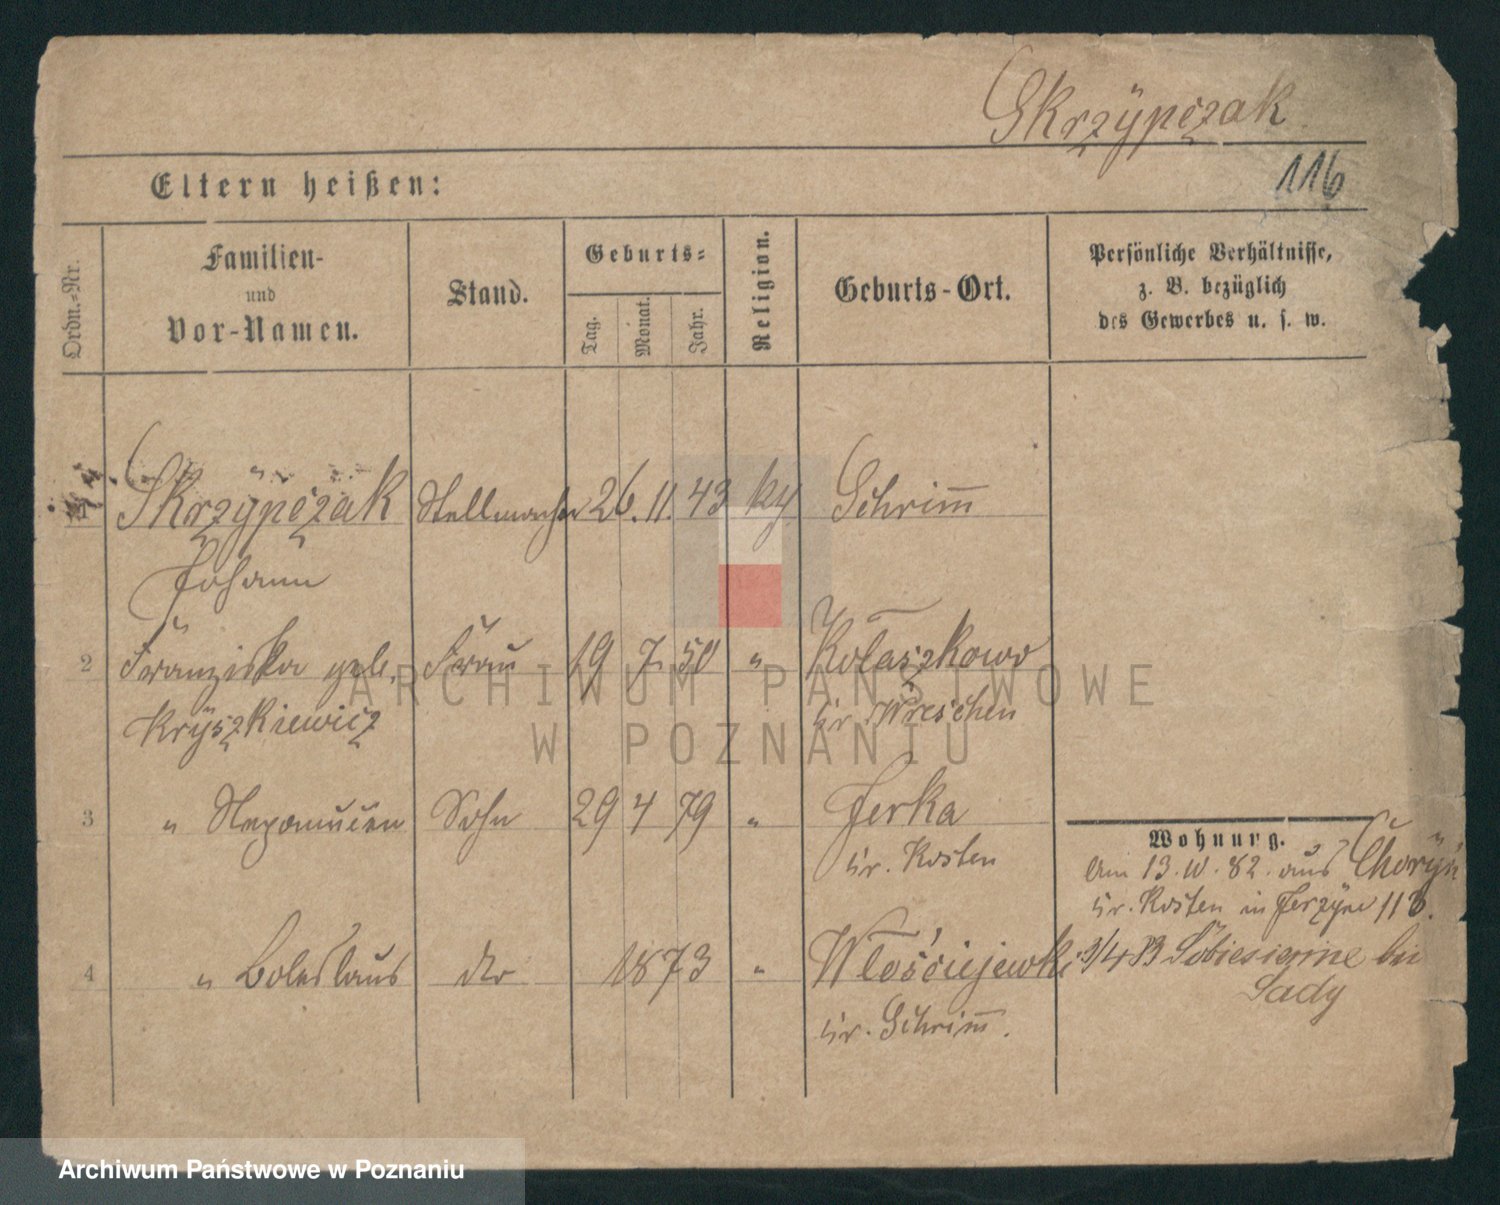 Skrzypczak
116
Eltern heißen:
Ordn.-Nr.
Familien-
und
Vor-Namen.
Stand.
Geburts-
Tag.
Monat.
Jahr.
Religion.
Geburts-Ort.
Persönliche Verhältnisse,
z. B. bezüglich
des Gewerbes u. s. w.
1 Skrzypczak Stellmacher 26. 11. 43 Schrimm
Johann
2 Franziska geb. Frau 19 7. 50 " Kołaszkowo
Kryszkiewicz Kr. Wreschen
3 " Nepomucen Sohn 29 4 79 " Jerka
Kr. Kosten
Wohnung.
Am 13. 82. aus Choryn
Kr. Kosten in Jerzyce 118.
4 " Boleslaus 1873 " Włościejewki 3/4 83 bei
Sady
Kr. Schrimm.
ARCHIWUM PAŃSTWOWE
W POZNANIU
Archiwum Państwowe w Poznaniu